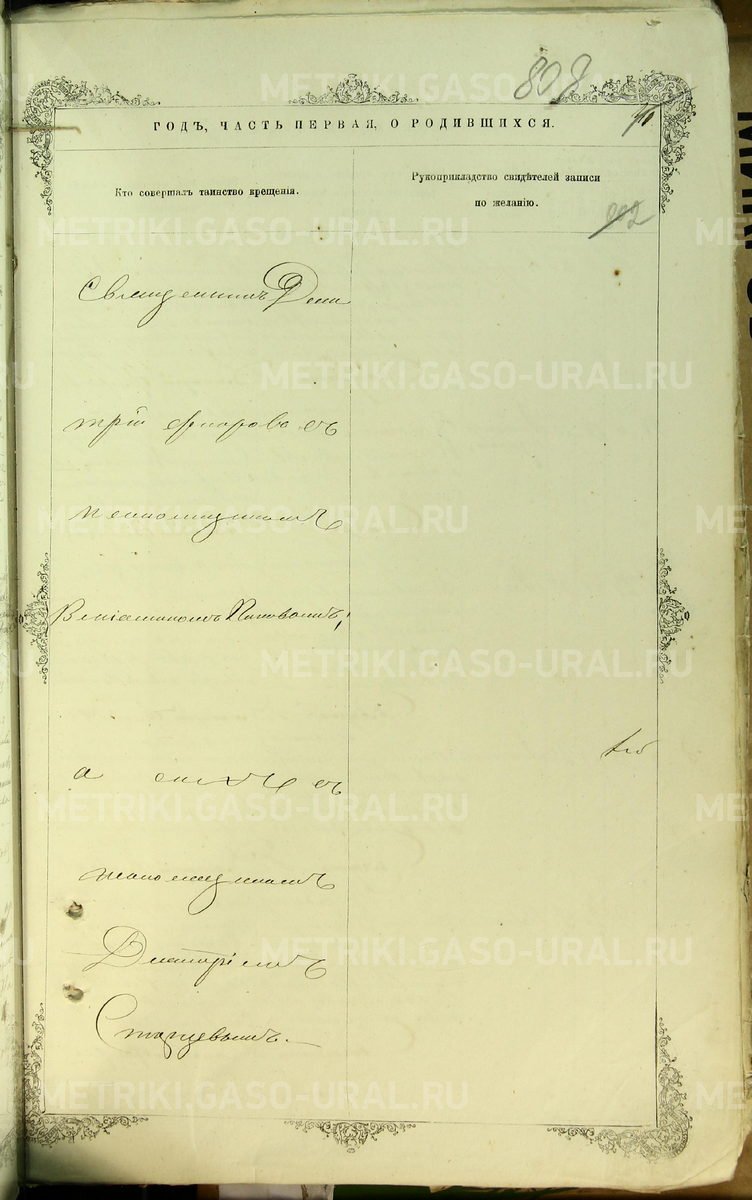 808
ГОДЪ, ЧАСТЬ ПЕРВАЯ, О РОДИВШИХСЯ.
Кто совершалъ таинство крещенія.
Рукоприкладство свидѣтелей записи
по желанію.
802
Священникъ Дми
трій съ
псаломщикомъ
Веніаминомъ Поповымъ,
а онъ съ
псаломщикомъ
Димитріемъ
Старцевымъ.
METRIKI.GASO-URAL.RU